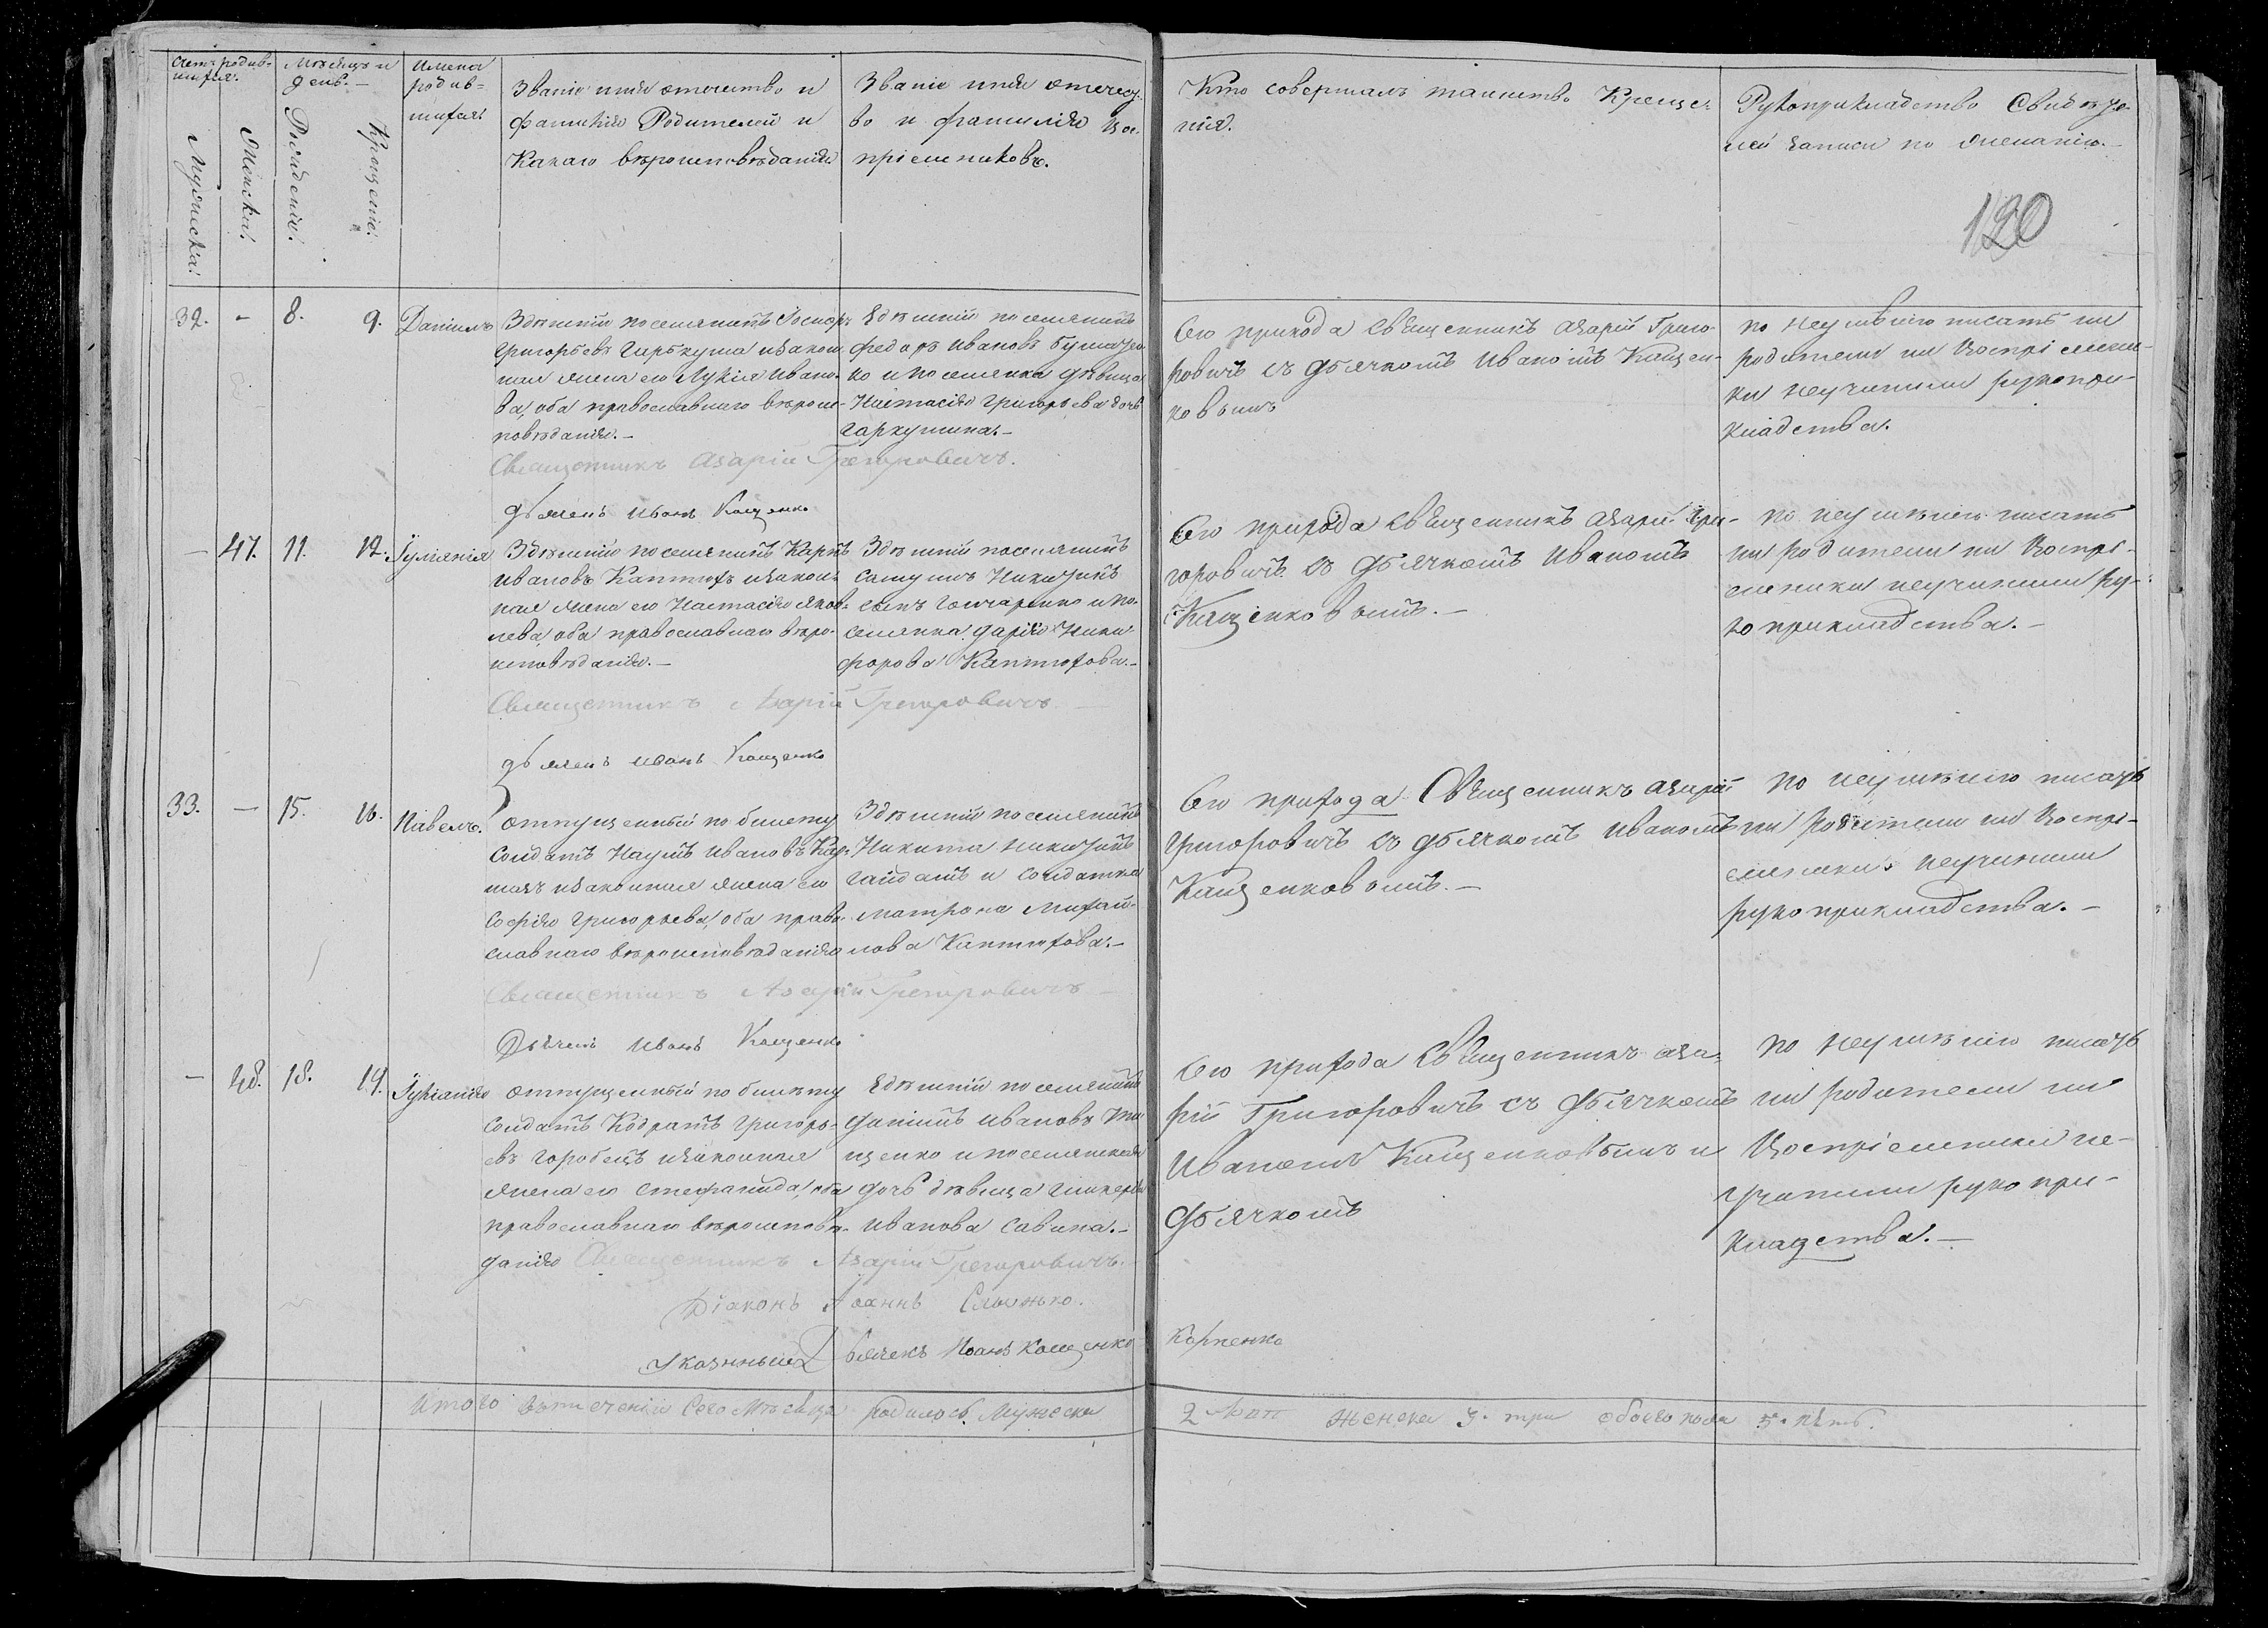 Счетъ родив-
шихся.
Мужеска.
Женска.
Мѣсяцъ и
день.
Рожденія.
Крещенія.
Имена
родив-
шихся
Званіе имя отечество и
фамилія Родителей и
Какаго вѣроисповѣданія
Званіе имя отечест-
во и фамилія вос-
пріемниковъ.
Кто совершалъ таинство Креще-
нія.
Рукоприкладство Свидѣте-
лей записи по желанію.
120
32. - 8. 9. Даніилъ
Здѣшній поселянинъ
Григорьевъ Гаркуша и закон-
ная жена его Лукія Ивано-
ва, оба православнаго вѣроис-
повѣданія.-
Священникъ Азарій Грегоровичъ.
дьячекъ Иванъ Кащенко
Здѣшній поселянинъ
Федоръ Ивановъ
ко и поселянка дѣвица
Настасія Григорьева дочь
Гаркушина.-
Сего прихода Священникъ Азарій Григо-
ровичъ съ дьячкомъ Иваномъ Кащен-
ковымъ
по неумѣнію писать ни
родители ни Воспріемни-
ки неучинили рукопри-
кладства.
- 47. 11. 12. Іуліанія
Здѣшній поселянинъ Карпъ
Ивановъ Каптюхъ и закон-
ная жена его Настасія Яков-
лева, оба православнаго вѣро-
исповѣданія.-
Священникъ Азарій Грегоровичъ
дьячекъ Иванъ Кащенко
Здѣшній поселянинъ
Самуилъ Никитинъ
сынъ Гончаренко и по-
селянка Дарія Ники-
форова Каптюхова.-
Сего прихода Священникъ Азарій Гри-
горовичъ съ дьячкомъ Иваномъ
Кащенковымъ.-
по неумѣнію писать
ни родители ни Воспрі-
емники неучинили ру-
коприкладства.-
33. - 15. 16. Павелъ.
Отпущенный по билету
Солдатъ Наумъ Ивановъ
и законная жена его
Софія Григорьева, оба право-
славнаго вѣроисповѣданія
Священникъ Азарій Грегоровичъ
Дьячекъ Иванъ Кащенко
Здѣшній поселянинъ
Никита Никитинъ
Гайдашъ и солдатка
Матрона Михай-
лова Каптюхова.-
Сего прихода Священникъ Азарій
Григоровичъ съ дьячкомъ Иваномъ
Кащенковымъ.-
по неумѣнію писать
ни родители ни Воспрі-
емники неучинили
рукоприкладства.-
- 48. 18. 19.
Отпущенный по билету
Солдатъ Кодратъ Григорь-
евъ Горобецъ и законная
жена его Стефанида, оба
православнаго вѣроисповѣ-
данія Священникъ Азарій Грегоровичъ.
Діаконъ Іоаннъ
Указнный Дьячекъ Иванъ Кащенко
Здѣшній поселянинъ
Даніилъ Ивановъ
щенко и поселянская
дочь дѣвица Гликерія
Иванова Савина.-
Сего прихода Священникъ Аза-
рій Григоровичъ съ дьячкомъ
Иваномъ Кащенковымъ и
дьячкомъ
Карпенко
по неумѣнію писать
ни родители ни
Воспріемники не-
учинили рукопри-
кладства.-
Итого въ теченіи Сего Мѣсяца родилось Мужеска
2 женска 3. три обоего пола 5. пять.